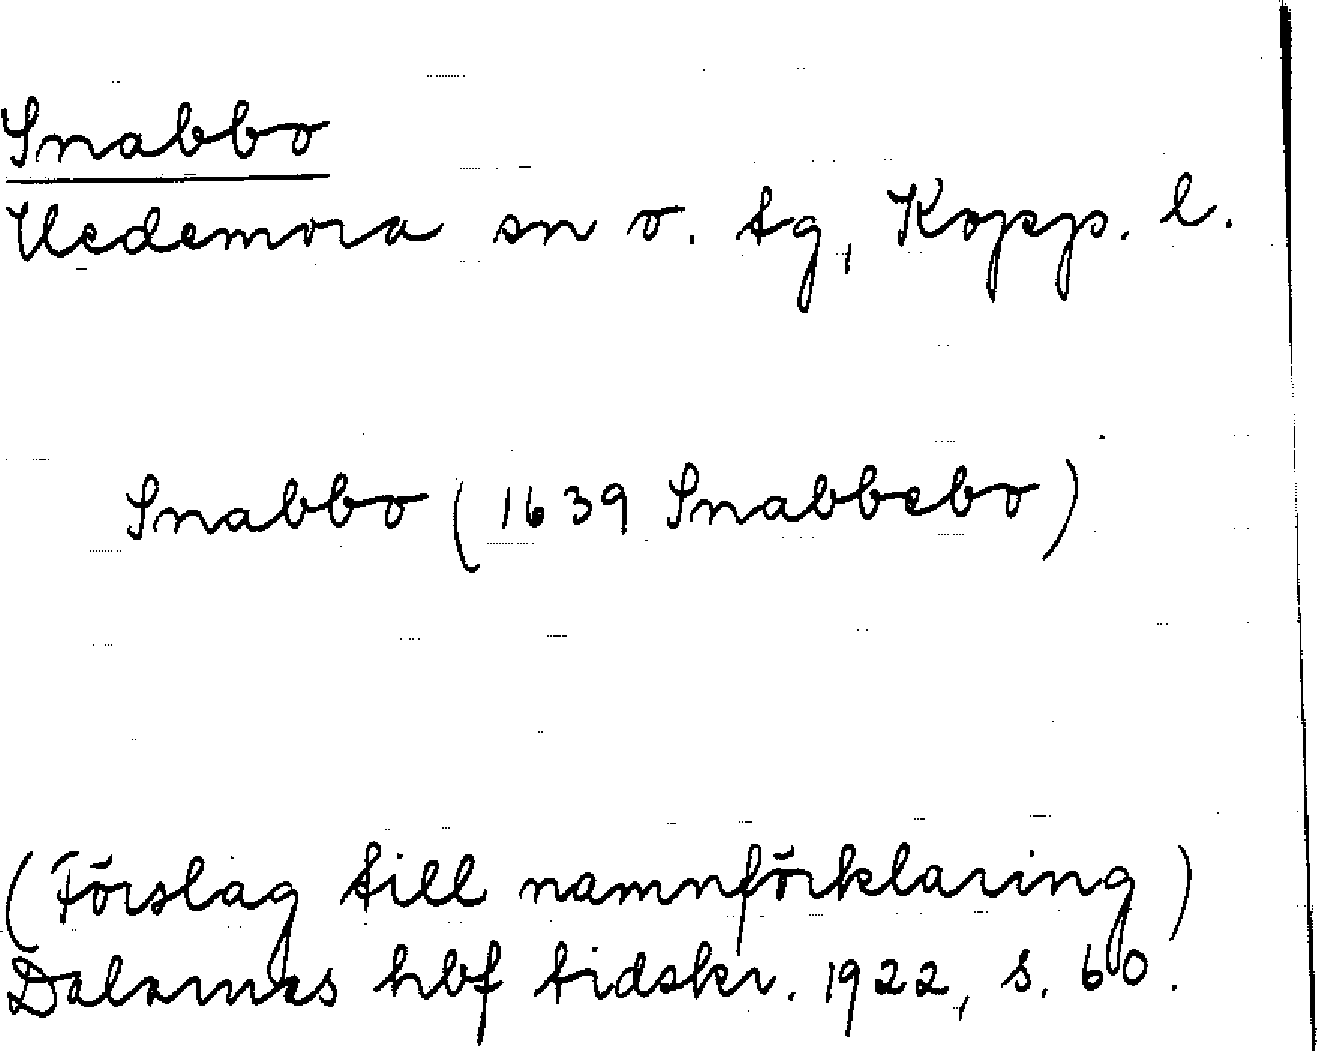 Snabbo
Vedemora sn o. tg, Kopp. l.
Snabbo (1639 Snabbebo)
(Förslag till namnförklaring)
Dalarnes hbf tidskr. 1922, s. 60.